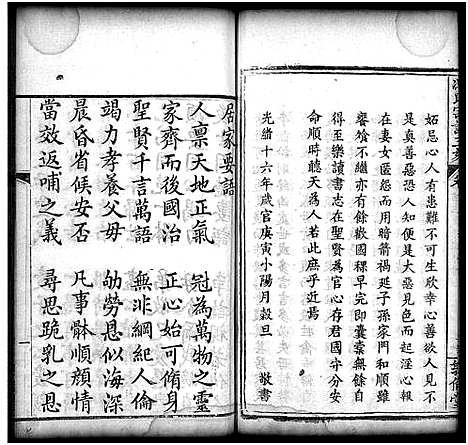 妬忌心人有患難不可生欣幸心善欲人見不
是真善惡恐人知便是大惡見色而起淫心報
在妻女匿怨而用暗箭禍延子孫家門和順雖
饔飧不繼亦有餘歡國課早完即囊橐無餘自
得至樂讀書志在聖賢為官心存君國守分安
命順時聽天為人若此庶乎近焉
光緒十六年歲官庚寅小陽月穀旦 敬書
居家要語
人稟天地正氣 冠為萬物之靈
家齊而後國治 正心始可脩身
聖賢千言萬語 無非綱紀人倫
竭力孝養父母 劬勞恩似海深
晨昏省候安否 凡事餘順顏情
當效返哺之義 尋思跪乳之恩
一